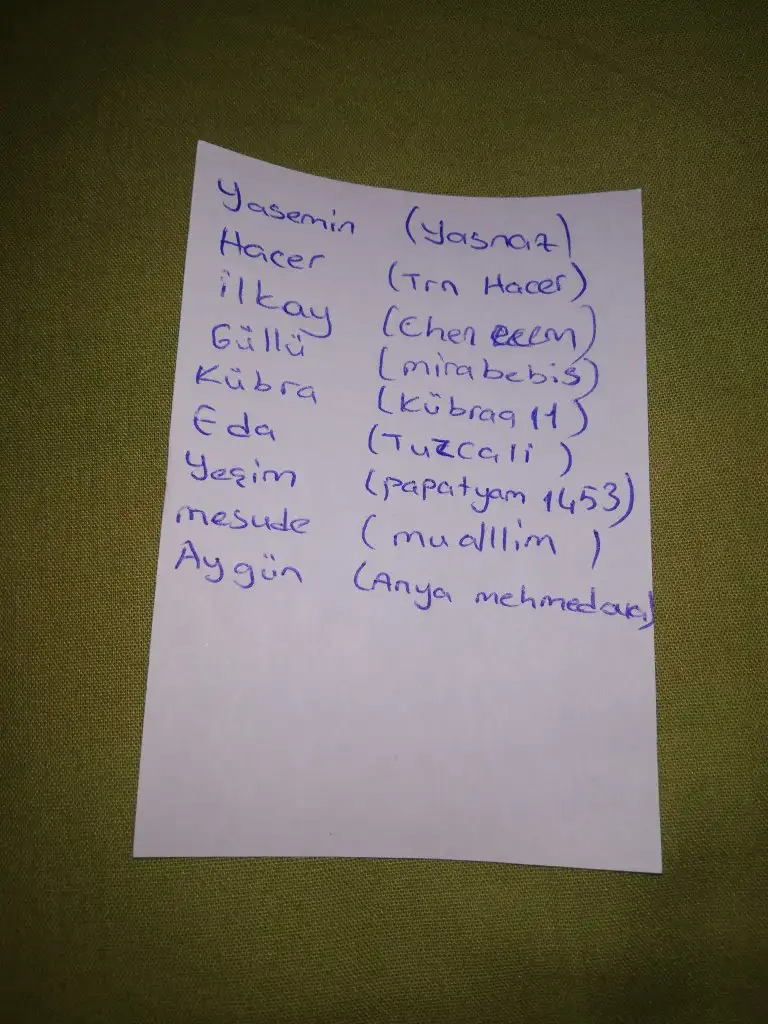 Yasemin (Yasnaz)
Hacer (Trn Hacer)
ilkay (Ehen
Güllü (mirabebis)
Kübra (Kübraq 11)
Eda (Tuzcali)
Yeşim (papatyam 1453)
mesude (muallim)
Aygün (Anya mehmedova)